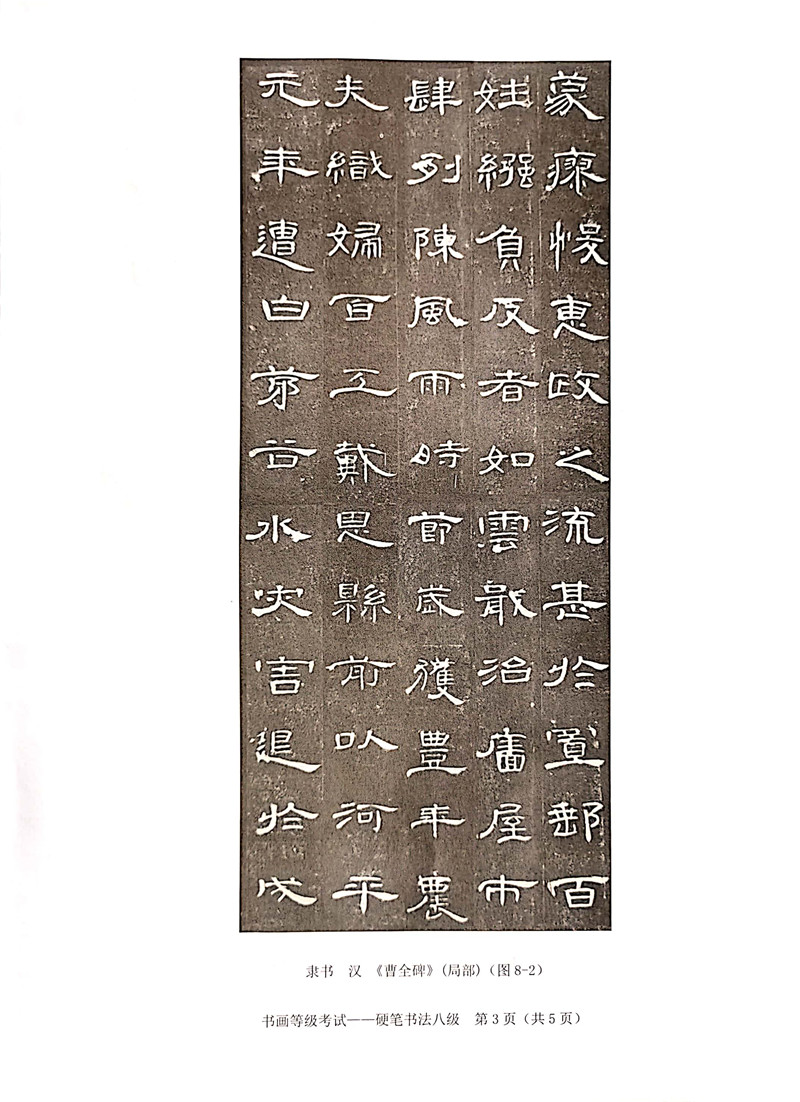 蒙瘳悛惠政之流甚於置郵百
姓繦負反者如雲戢治廧屋市
肆列陳風雨時節歲獲豐年農
夫織婦百工戴恩縣前以河平
元年遭白茅谷水灾害退於戌
隶书 汉 《曹全碑》(局部)（图8-2）
书画等级考试——硬笔书法八级 第3页（共5页）